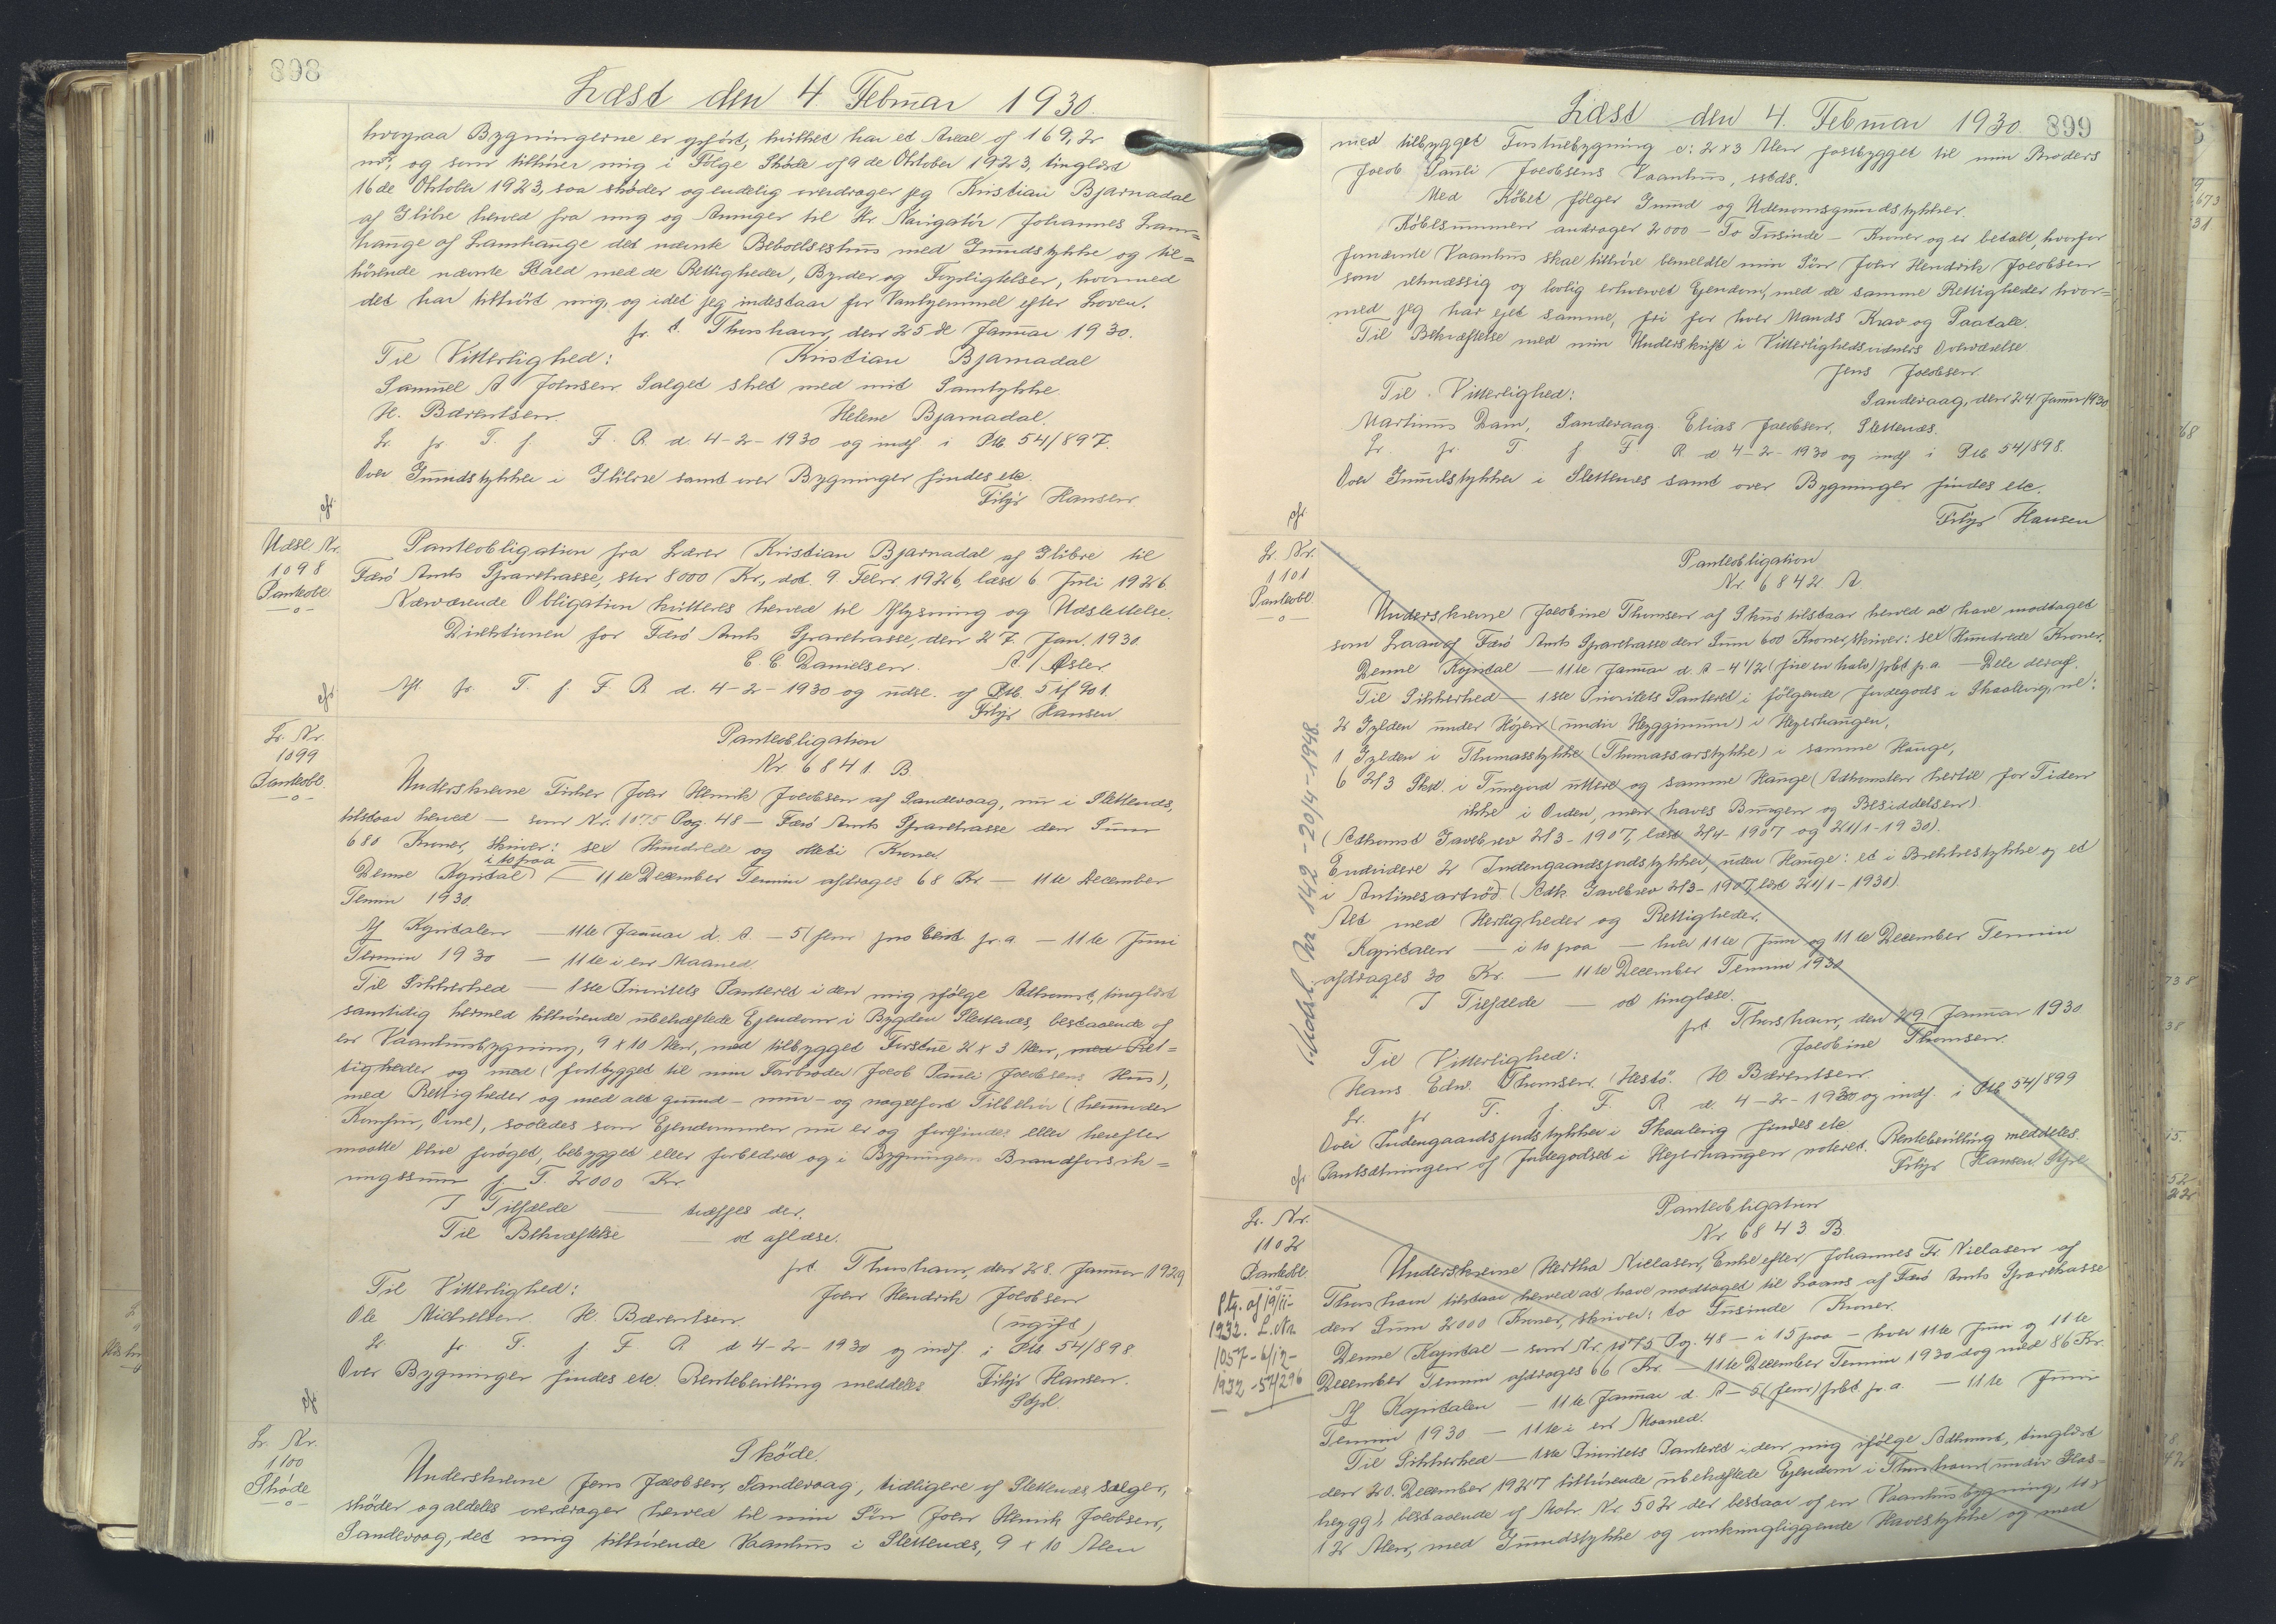 898
Læst den 4. Februar 1930.
hvorpaa Bygningerne er opført, hvilket har et Areal af 169,2
m², og som tilhører mig i Følge Skøde af 9de Oktober 1923, tinglæst
16de Oktober 1923, saa skøder og endelig overdrager jeg Kristian Bjarnadal
af Glibre herved fra mig og Arvinger til Hr. Navigatør Johannes Lam=
hauge af Lamhauge det nævnte Beboelseshus med Grundstykke og til=
hørende nævnte Stald med de Rettigheder, Byrder og Forpligtelser, hvormed
det har tilhørt mig, og idet jeg indestaar for Vanhjemmel efter Loven.
p. t. Thorshavn, den 25de Januar 1930.
Til Vitterlighed: Kristian Bjarnadal
Samuel A Johnsen. Salget sket med mit Samtykke
H. Bærentsen. Helene Bjarnadal.
Lr. fr. T. f. F. R. d. 4-2-1930 og indf. i Ptb. 54/897.
Over Grundstykker i Glibre samt over Bygninger findes etc.
Filip Hansen.
cfr.
Udsl. Nr.
1098
Panteobl.
—o—
Panteobligation fra Lærer Kristian Bjarnadal af Glibre til
Færø Amts Sparekasse, stor 8000 Kr., dat. 9. Febr. 1926, læst 6. Juli 1926.
Nærværende Obligation kvitteres herved til Aflysning og Udslettelse.
Direktionen for Færø Amts Sparekasse, den 27. Jan. 1930.
C. C. Danielsen. A. / Øster
Afl. fr. T. f. F. R. d. 4-2-1930 og udsl. af Ptb. 901.
Filip Hansen
cfr.
Lr. Nr.
1099
Panteobl.
—o—
Panteobligation
Nr. 6841. B
Underskrevne Fisker John Henrik Jacobsen af Sandevaag, nu i Slettenæs,
tilstaar herved — som Nr. 1075 Pag. 48 — Færø Amts Sparekasse den Sum
680 Kroner, skriver: sex Hundrede og otteti Kroner.
i 10 paa
Denne Kapital — 11te December Termin afdrages 68 Kr — 11te December
Termin 1930.
Af Kapitalen — 11te Januar d. A. — 5 (fem) pro Cent p. a. — 11te Juni
Termin 1930 — 11te i en Maaned.
Til Sikkerhed — 1ste Prioritets Panteret i den mig ifølge Adkomst, tinglæst
samtidig hermed tilhørende ubehæftede Ejendom i Bygden Slettenæs, bestaaende af
en Vaanhusbygning, 9 x 10 Alen, med tilbygget Forstue 2 x 3 Alen, med Ret=
tigheder og med (fastbygget til min Farbroder Jacob Pauli Jacobsens Hus),
med Rettigheder og med alt grund- mur- og nagelfast Tilbehør (herunder
Komfur, Ovne), saaledes som Ejendommen nu er og forefindes eller herefter
maatte blive forøget, bebygget eller forbedret og i Bygningens Brandforsik=
ringssum f. T. 2000 Kr.
I Tilfælde — træffes der.
Til Bekræftelse — at aflæse.
pt. Thorshavn, den 28. Januar 1929
Til Vitterlighed: John Hendrik Jacobsen
Ole Michelsen. H. Bærentsen. (ugift)
Lr. fr. T. f. F. R. d 4-2-1930 og indf. i Ptb 54/898
Over Bygninger findes etc. Rentebevilling meddeles Filip Hansen.
Stpl.
cfr
Lr. Nr.
1100
Skøde
—o—
Skøde.
Underskrevne Jens Jacobsen, Sandevaag, tidligere af Slettenæs sælger,
skøder og aldeles overdrager herved til min Søn John Henrik Jacobsen,
Sandevaag, det mig tilhørende Vaanhus i Slettenæs, 9 x 10 Alen
Læst den 4. Februar 1930. 899
med tilbygget Forstuebygning c: 2x3 Alen fastbygget til min Broders
Jacob Pauli Jacobsens Vaanhus, sstds.
Med Købet følger Grund og Udenomsgrundstykker.
Købesummen andrager 2000 — To Tusinde — Kroner og er betalt, hvorfor
fornævnte Vaanhus skal tilhøre bemeldte min Søn John Hendrik Jacobsen
som retmæssig og lovlig erhvervet Ejendom, med de samme Rettigheder hvor=
med jeg har ejet samme, fri for hver Mands Krav og Paatale.
Til Bekræftelse med min Underskrift i Vitterlighedsvidners Overværelse.
Jens Jacobsen
Til Vitterlighed: Sandevaag, den 24 Januar 1930.
Martinus Dam, Sandevaag. Elias Jacobsen, Slettenæs.
Lr. fr. T f F. R d 4-2-1930 og indf. i Ptb 54/898.
Over Grundstykker i Slettenæs samt over Bygninger findes etc.
Filip Hansen
cfr.
Lr. Nr.
1101
Panteobl.
—o—
Udsl. Nr. 142 - 20/4 - 1948.
Panteobligation
Nr 6842 A
Underskrevne Jacobine Thomsen af Skuø tilstaar herved at have modtaget
som Laan af Færø Amts Sparekasse den Sum 600 Kroner, skriver: sex Hundrede Kroner.
Denne Kapital — 11te Januar d. A — 4 1/2 (fire en halv) pct p. a. — Dele deraf.
Til Sikkerhed — 1ste Prioritets Panteret i følgende Jordegods i Skaalevig, nl:
2 Gylden under Højen (undir Heygginum) i Heyerhaugen,
1 Gylden i Thomasstykke (Thomassarstykke) i samme Hauge,
6 2/3 Skd. i Tungund uttere og samme Hauge (Adkomsten hertil for Tiden
ikke i Orden, men haves Brugen og Besiddelsen)
(Adkomst Gavebrev 2/3-1907, læst 2/4-1907 og 21/1-1930).
Endvidere 2 Indengaardsjordstykker, uden Hauge: et i Brekkestykke og et
i Antinesartrød (Adk. Gavebrev 2/3-1907, læst 21/1-1930)
Alt med Herligheder og Rettigheder.
Kapitalen — i 10 paa — hver 11te Juni og 11te December Termin
afdrages 30 Kr. — 11te December Termin 1930
I Tilfælde — at tinglæse.
pt. Thorshavn, den 29 Januar 1930
Til Vitterlighed: Jacobine Thomsen.
Hans Edw. Thomsen, Hestø. H Bærentsen
Lr. fr T. f. F. R d. 4-2-1930 og indf. i Ptb 54/899
Over Indengaardsjordstykker i Skaalevig findes etc.
Pantsætningen af Jordegodset i Heyerhaugen noteret. Rentebevilling meddeles.
Filip Hansen. Stpl
cfr
Lr. Nr.
1102
Panteobl.
Ptg. af 19/11-
1932. L.Nr.
1057-6/12-
1932-57/296
Panteobligation
Nr 6843 B.
Underskrevne Hertha Nielasen, Enke efter Johannes Fr. Nielasen af
Thorshavn tilstaar herved at have modtaget til Laans af Færø Amts Sparekasse
den Sum 2000 Kroner, skriver: to Tusinde Kroner.
Denne Kapital — som Nr. 1075 Pag. 48 — i 15 paa — hver 11te Juni og 11te
December Termin afdrages 66 Kr. — 11te December Termin 1930 dog med 86 Kr.
Af Kapitalen — 11te Januar d. A — 5 (fem) pct p. a. — 11te Juni
Termin 1930. — 11te i en Maaned.
Til Sikkerhed — 1ste Prioritets Panteret i den mig ifølge Adkomst, tinglæst
den 20. December 1927 tilhørende ubehæftede Ejendom i Thorshavn (undir Glas=
heygg), bestaaende af Matr. Nr. 502 der bestaar af en Vaanhusbygning, 10 x
12 Alen, med Grundstykke og omkringliggende Havestykke og med